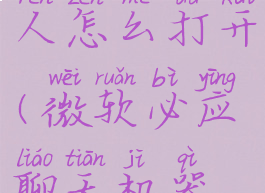 rén zěn me dǎ kāi
人怎么打开
wēi ruǎn bì yīng
(微软必应
liáo tiān jī qì
聊天机器